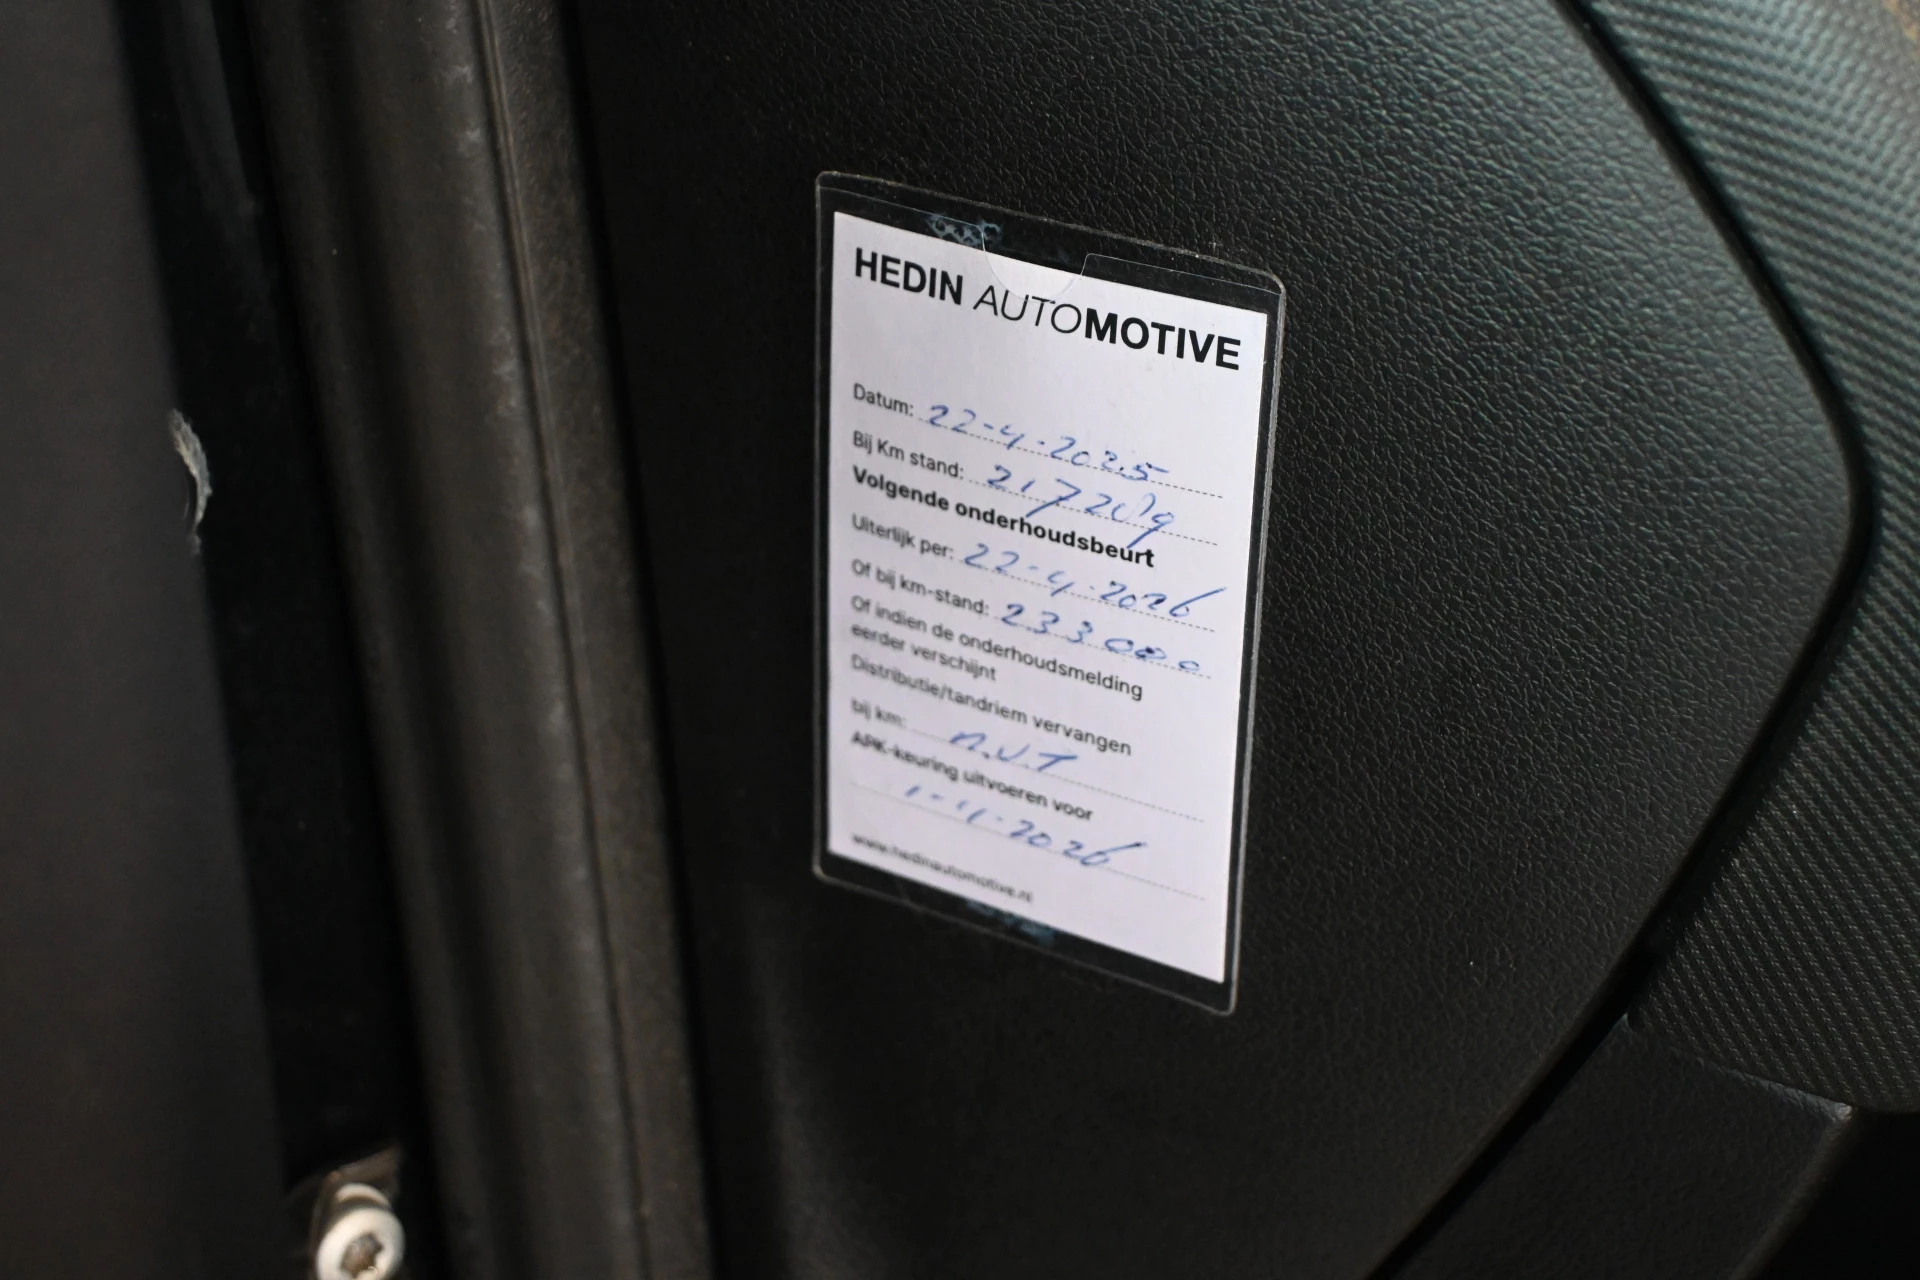 HEDIN AUTOMOTIVE
Datum: 22-4-2025
Bij Km stand: 217209
Volgende onderhoudsbeurt
Uiterlijk per: 22-4-2026
Of bij km-stand: 233000
Of indien de onderhoudsmelding
eerder verschijnt
Distributie/tandriem vervangen
bij km: n.v.t
APK-keuring uitvoeren voor
1-4-2026
www.hedinautomotive.nl